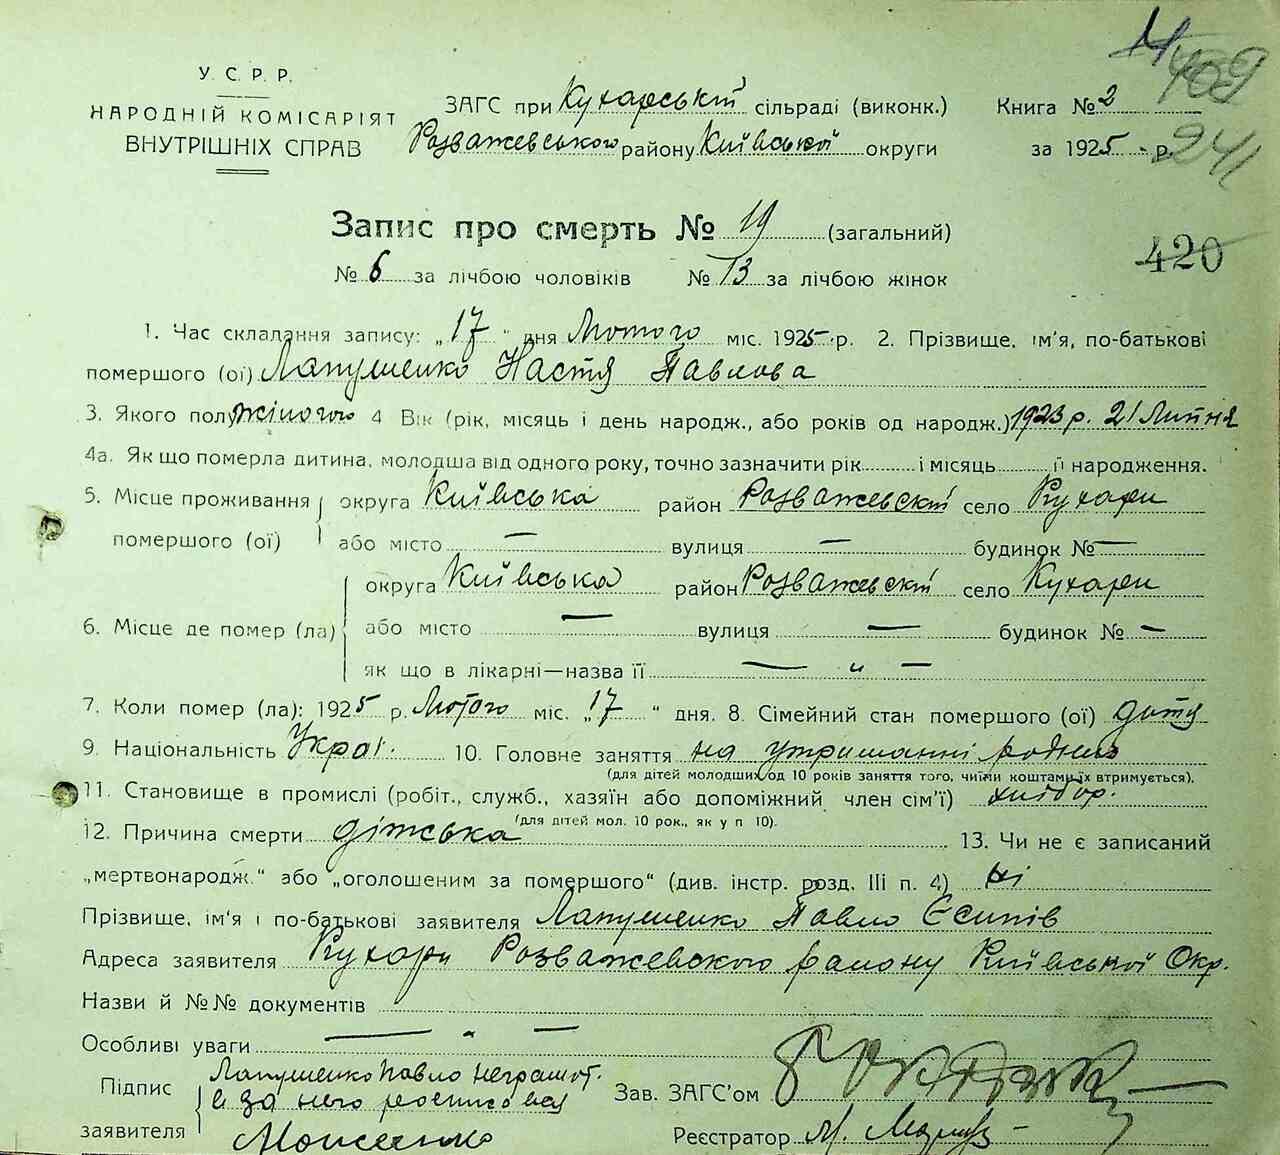 У. С. Р. Р.
НАРОДНІЙ КОМІСАРІЯТ
ВНУТРІШНІХ СПРАВ
ЗАГС при Кухарській сільраді (виконк.)
Розважевського району Київської округи
Книга № 2
за 1925 р.
409
241
420
Запис про смерть № 19 (загальний)
№ 6 за лічбою чоловіків № 13 за лічбою жінок
1. Час складання запису: „17" дня Лютого міс. 1925 р. 2. Прізвище, ім'я, по-батькові
помершого (ої) Лапушенко Настя Павлова
3. Якого полу жіночого 4 Вік (рік, місяць і день народж., або років од народж.) 1923 р. 21 Липня
4а. Як що померла дитина, молодша від одного року, точно зазначити рік і місяць її народження.
5. Місце проживання помершого (ої) округа Київська район Розважевскій село Кухари
або місто — вулиця — будинок № —
6. Місце де помер (ла) округа Київська район Розважевскій село Кухари
або місто — вулиця — будинок № —
як що в лікарні—назва її — „ —
7. Коли помер (ла): 1925 р. Лютого міс. „17" дня. 8. Сімейний стан помершого (ої) дитя
9. Національність Украї. 10. Головне заняття на утриманні родини
(для дітей молодших од 10 років заняття того, чиїми коштами їх втримується).
11. Становище в промислі (робіт., служб., хазяїн або допоміжний член сім'ї) хлібор.
(для дітей мол. 10 рок., як у п 10).
12. Причина смерти дітська 13. Чи не є записаний
„мертвонародж." або „оголошеним за помершого" (див. інстр. розд. III п. 4) ні
Прізвище, ім'я і по-батькові заявителя Лапушенко Павло Єсипів
Адреса заявителя Кухари Розважевского району Київської Окр.
Назви й №№ документів
Особливі уваги — „ —
Підпис заявителя Лапушенко Павло неграмот.
а за него росписовся
Моисеенко
Зав. ЗАГС'ом
Реєстратор М.